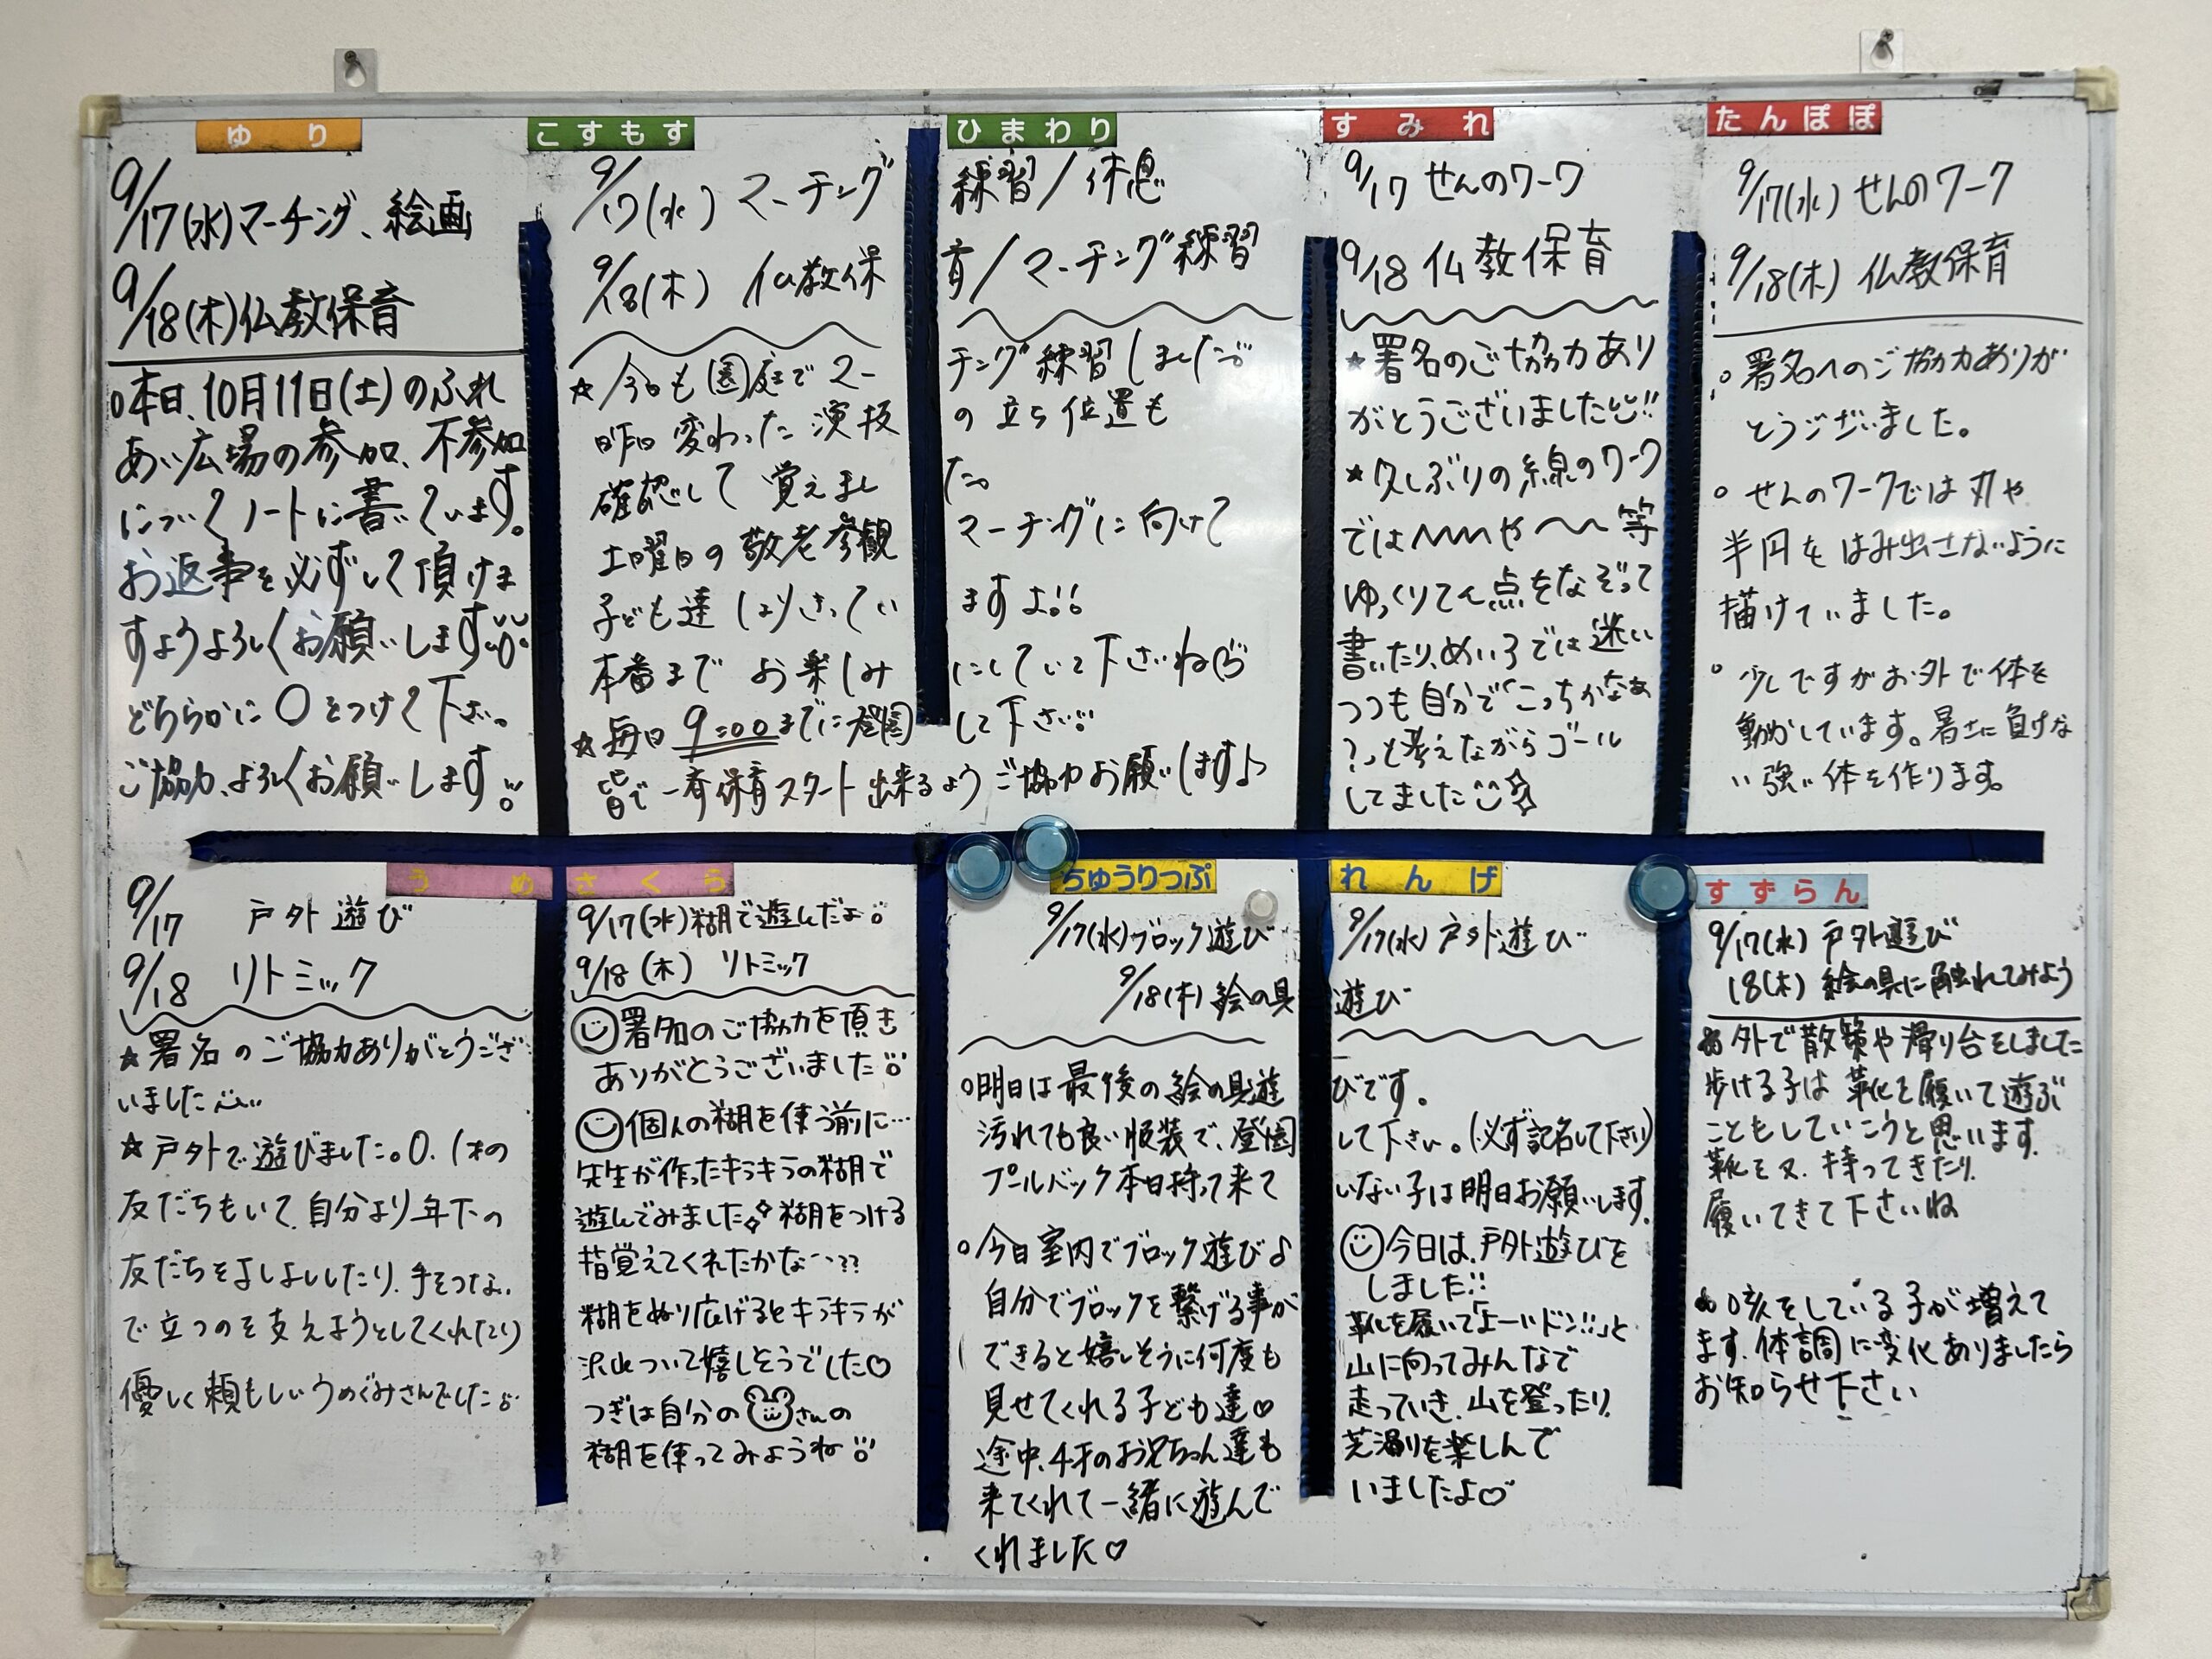 ゆり
9/17(水)マーチング、絵画
9/18(木)仏教保育
○本日、10月11日(土)のふれ
あい広場の参加、不参加
についてノートに書いています。
お返事を必ずして頂けま
すようよろしくお願いします
どちらかに○をつけて下さい。
ご協力、よろしくお願いします
こすもす ひまわり
9/17(水) マーチング練習/休息
9/18(木) 仏教保育/マーチング練習
☆今日も園庭でマーチング練習しました
昨日変わった演技の立ち位置も
確認して覚えました。
土曜日の敬老参観マーチングに向けて
子ども達はりきっていますよ!!
本番までお楽しみにしていて下さいね
☆毎日 9:00までに登園して下さい
皆で一斉保育スタート出来るようご協力お願いしますよ
すみれ
9/17 せんのワーク
9/18 仏教保育
★署名のご協力あり
がとうございました!!
★久しぶりの線のワーク
では〰〰や〜〜等
ゆっくりてん点をなぞって
書いたり、めいろでは迷い
つつも自分で「こっちかなぁ
?」と考えながらゴール
してました☺☆
たんぽぽ
9/17(水) せんのワーク
9/18(木) 仏教保育
○署名へのご協力ありが
とうございました。
○せんのワークでは丸や
半円をはみ出さないように
描けていました。
○少しですがお外で体を
動かしています。暑さに負けな
い強い体を作ります。
うめ
9/17 戸外遊び
9/18 リトミック
★署名のご協力ありがとうござ
いました
★戸外で遊びました。0、1才の
友だちもいて、自分より年下の
友だちをよしよししたり、手をつない
で立つのを支えようとしてくれたり
優しく頼もしいうめぐみさんでした
さくら
9/17(水)糊で遊んだよ
9/18(木) リトミック
☺署名のご協力を頂き
ありがとうございました
☺個人の糊を使う前に…
先生が作ったキラキラの糊で
遊んでみました 糊をつける
指覚えてくれたかな…??
糊をぬり広げるとキラキラが
沢山ついて嬉しそうでした♡
つぎは自分の さんの
糊を使ってみようね
ちゅうりっぷ れんげ
9/17(水)ブロック遊び 9/17(水)戸外遊び
9/18(木)絵の具遊び
○明日は最後の絵の具遊びです。
汚れても良い服装で、登園して下さい。(必ず記名して下さい)
プールバック本日持って来ていない子は明日お願いします。
○今日室内でブロック遊び♪
自分でブロックを繋げる事が
できると嬉しそうに何度も
見せてくれる子ども達♡
途中、4才のお兄ちゃん達も
来てくれて一緒に遊んで
くれました♡
☺今日は、戸外遊びを
しました!!
靴を履いて「よーいドン!!」と
山に向ってみんなで
走っていき、山を登ったり、
芝滑りを楽しんで
いましたよ♡
すずらん
9/17(水) 戸外遊び
18(木) 絵の具に触れてみよう
外で散策や滑り台をしました
歩ける子は靴を履いて遊ぶ
こともしていこうと思います。
靴を又、持ってきたり、
履いてきて下さいね
咳をしている子が増えて
ます。体調に変化ありましたら
お知らせ下さい